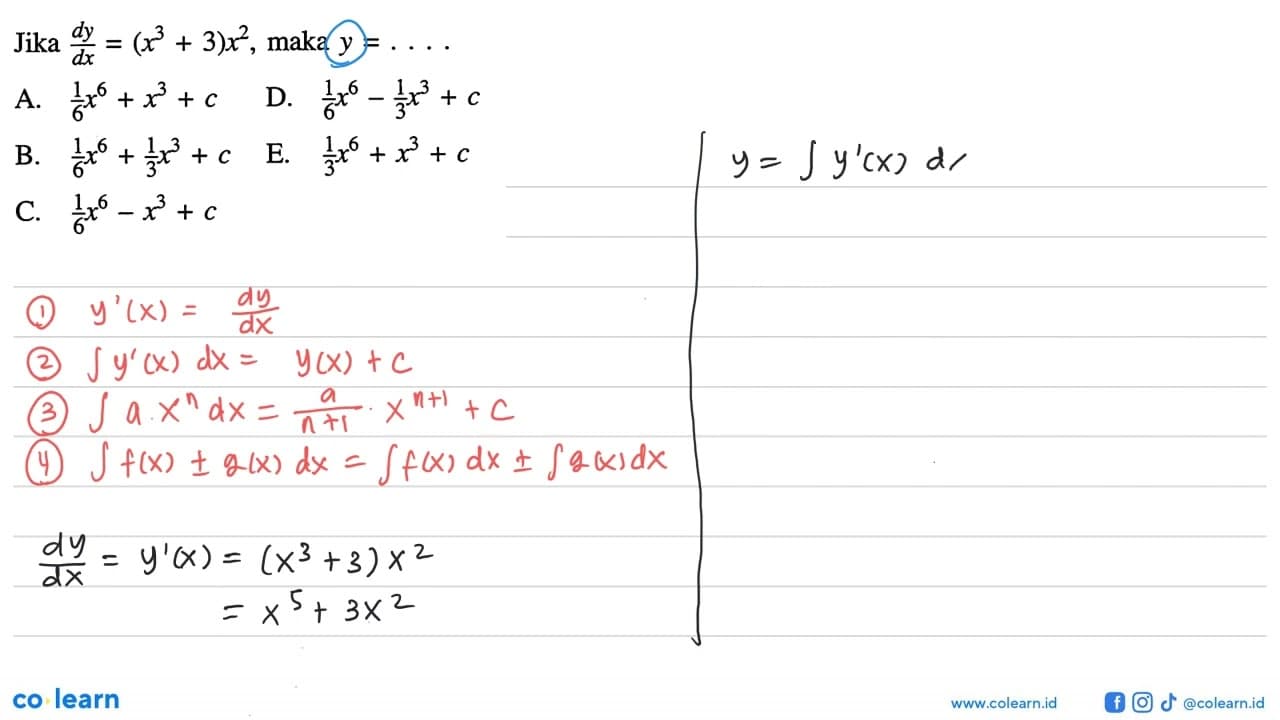 Jika dy/dx = (x³ + 3)x², maka y = . . . .
A. 1/6x⁶ + x³ + c D. 1/6x⁶ − 1/3x³ + c
B. 1/6x⁶ + 1/3x³ + c E. 1/3x⁶ + x³ + c
C. 1/6x⁶ − x³ + c
① y'(x) = dy/dx
② ∫ y'(x) dx = y(x) + C
③ ∫ a.xⁿ dx = a/(n+1) . xⁿ⁺¹ + C
④ ∫ f(x) ± g(x) dx = ∫ f(x) dx ± ∫ g(x) dx
dy/dx = y'(x) = (x³ + 3) x²
= x⁵ + 3x²
y = ∫ y'(x) dx
co learn
www.colearn.id @colearn.id